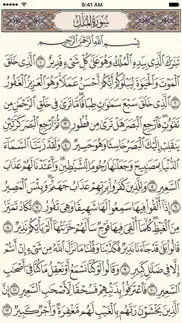 9:41 AM
سُورَةُ الْمُلْكِ
بِسْمِ اللَّهِ الرَّحْمَٰنِ الرَّحِيمِ
تَبَارَكَ الَّذِي بِيَدِهِ الْمُلْكُ وَهُوَ عَلَىٰ كُلِّ شَيْءٍ قَدِيرٌ ۝١ الَّذِي خَلَقَ
الْمَوْتَ وَالْحَيَاةَ لِيَبْلُوَكُمْ أَيُّكُمْ أَحْسَنُ عَمَلًا وَهُوَ الْعَزِيزُ الْغَفُورُ
۝٢ الَّذِي خَلَقَ سَبْعَ سَمَاوَاتٍ طِبَاقًا مَّا تَرَىٰ فِي خَلْقِ الرَّحْمَٰنِ مِن
تَفَاوُتٍ فَارْجِعِ الْبَصَرَ هَلْ تَرَىٰ مِن فُطُورٍ ۝٣ ثُمَّ ارْجِعِ الْبَصَرَ كَرَّتَيْنِ
يَنقَلِبْ إِلَيْكَ الْبَصَرُ خَاسِئًا وَهُوَ حَسِيرٌ ۝٤ وَلَقَدْ زَيَّنَّا السَّمَاءَ
الدُّنْيَا بِمَصَابِيحَ وَجَعَلْنَاهَا رُجُومًا لِّلشَّيَاطِينِ وَأَعْتَدْنَا لَهُمْ عَذَابَ
السَّعِيرِ ۝٥ وَلِلَّذِينَ كَفَرُوا بِرَبِّهِمْ عَذَابُ جَهَنَّمَ وَبِئْسَ الْمَصِيرُ
۝٦ إِذَا أُلْقُوا فِيهَا سَمِعُوا لَهَا شَهِيقًا وَهِيَ تَفُورُ ۝٧ تَكَادُ تَمَيَّزُ
مِنَ الْغَيْظِ كُلَّمَا أُلْقِيَ فِيهَا فَوْجٌ سَأَلَهُمْ خَزَنَتُهَا أَلَمْ يَأْتِكُمْ نَذِيرٌ ۝٨
قَالُوا بَلَىٰ قَدْ جَاءَنَا نَذِيرٌ فَكَذَّبْنَا وَقُلْنَا مَا نَزَّلَ اللَّهُ مِن شَيْءٍ إِنْ أَنتُمْ
إِلَّا فِي ضَلَالٍ كَبِيرٍ ۝٩ وَقَالُوا لَوْ كُنَّا نَسْمَعُ أَوْ نَعْقِلُ مَا كُنَّا فِي أَصْحَابِ
السَّعِيرِ ۝١٠ فَاعْتَرَفُوا بِذَنبِهِمْ فَسُحْقًا لِّأَصْحَابِ السَّعِيرِ ۝١١ إِنَّ
الَّذِينَ يَخْشَوْنَ رَبَّهُم بِالْغَيْبِ لَهُم مَّغْفِرَةٌ وَأَجْرٌ كَبِيرٌ ۝١٢